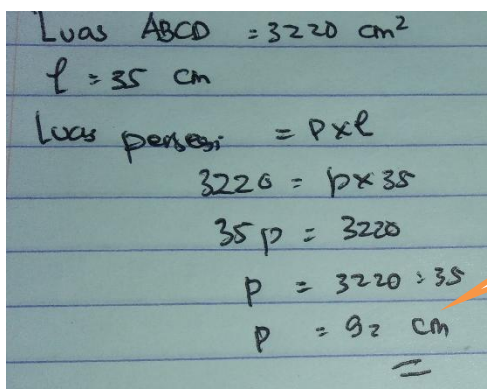 Luas ABCD = 3220 cm²
l = 35 cm
Luas persegi = p x l
3220 = p x 35
35 p = 3220
p = 3220 : 35
p = 92 cm